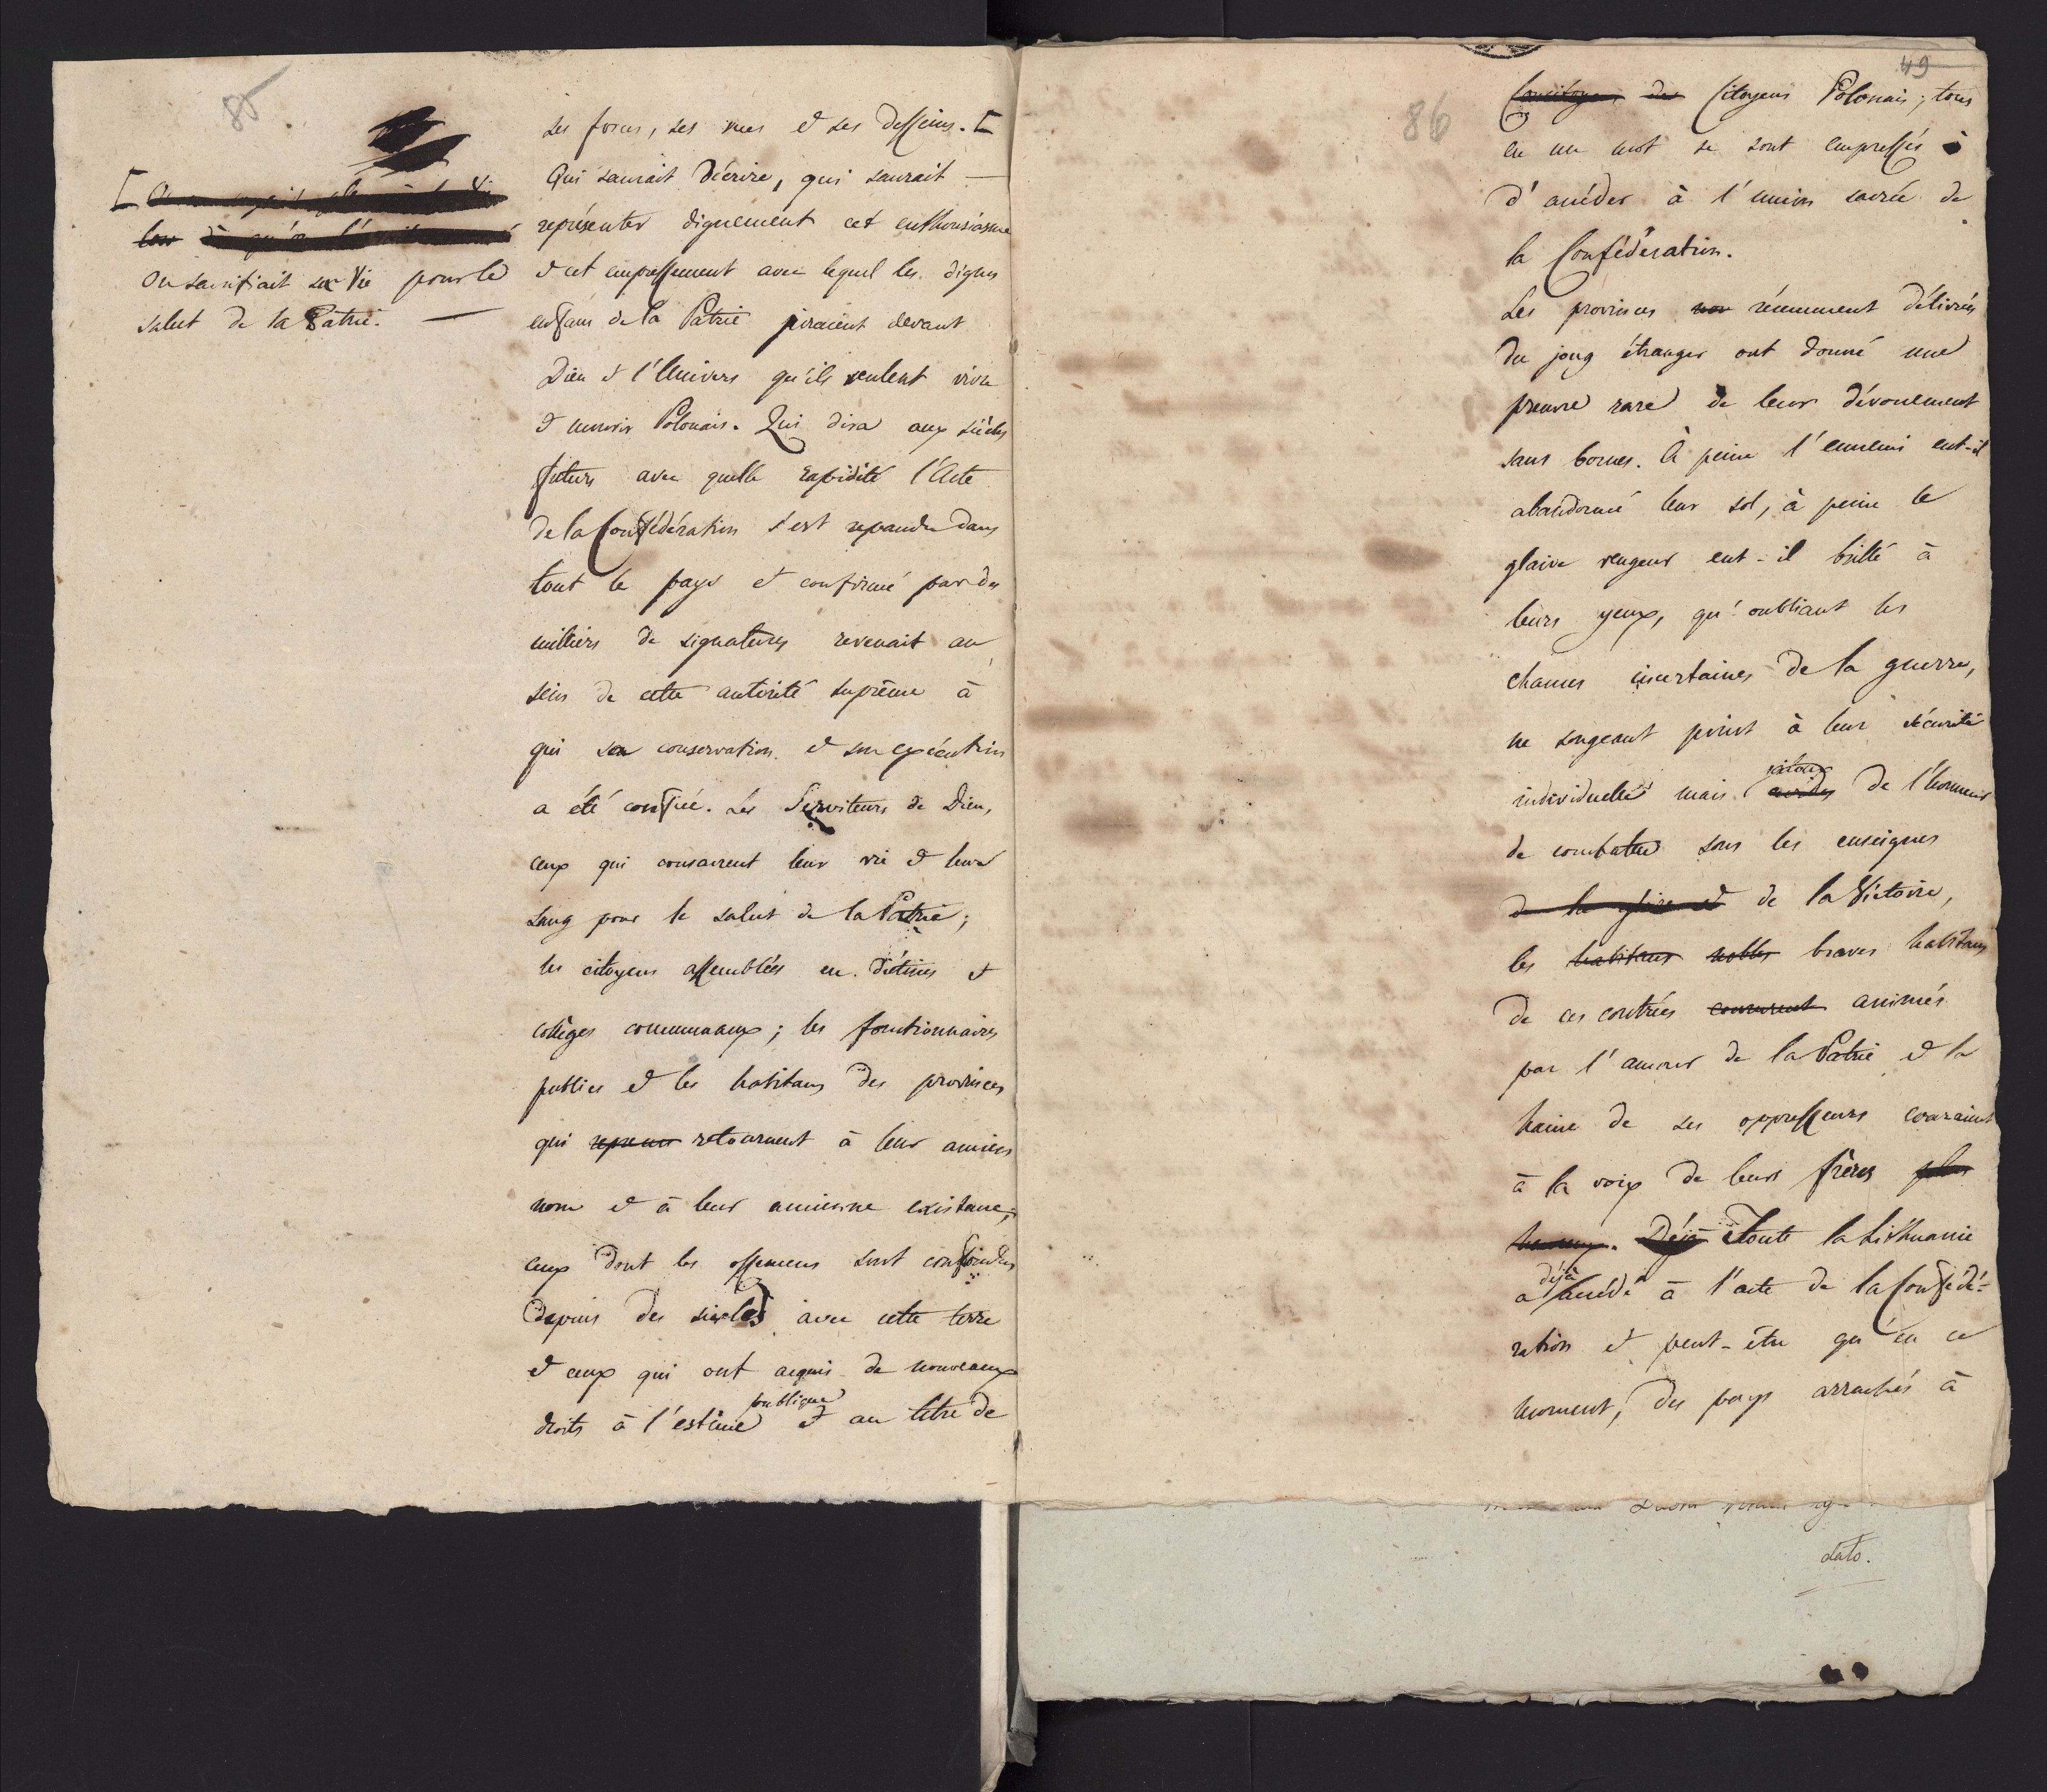 85
[
On sacrifiait sa Vie pour le
salut de la Patrie. —
ses forces, ses vues et ses desseins. [
Qui saurait décrire, qui saurait —
représenter dignement cet enthousiasme
et cet empressement avec lequel les dignes
enfans de la Patrie juraient devant
Dieu et l'Univers qu'ils veulent vivre
et mourir Polonais. Qui dira aux siècles
futurs avec quelle rapidité l'Acte
de la Confédération s'est repandu dans
tout le pays et confirmé par des
milliers de signatures revenait au
sein de cette autorité suprême à
qui sa conservation et son exécution
a été confiée. Les Serviteurs de Dieu,
ceux qui consacrent leur vie et leur
sang pour le salut de la Patrie;
les citoyens assemblés en diétines et
collèges communaux; les fonctionnaires
publics et les habitans des provinces
qui retournent à leur ancien
nom et à leur ancienne existance;
ceux dont les ossemens sont confondus
depuis des siecles avec cette terre
et ceux qui ont acquis de nouveaux
droits à l'estime publique et au titre de
49
86
Concitoyens des Citoyens Polonais; tous
en un mot se sont empressés
d'accéder à l'union sacrée de
la Confédération.
Les provinces nou récemment délivrées
du joug étranger ont donné une
preuve rare de leur dévouement
sans bornes. À peine l'ennemi eut-il
abandonné leur sol, à peine le
glaive vengeur eut-il brillé à
leurs yeux, qu'oubliant les
chances incertaines de la guerre,
ne songeant point à leur sécurité
individuelle mais avides jaloux de l'honneur
de combattre sous les enseignes
de la gloire et de la Victoire,
les habitans nobles braves habitans
de ces contrées coururent animés
par l'amour de la Patrie et la
haine de ses oppresseurs couraient
à la voix de leurs frères
Déjà Toute la Lithuanie
a déjà accédé à l'acte de la Confédé-
ration et peut-être qu'en ce
moment, des pays arrachés à
dato.